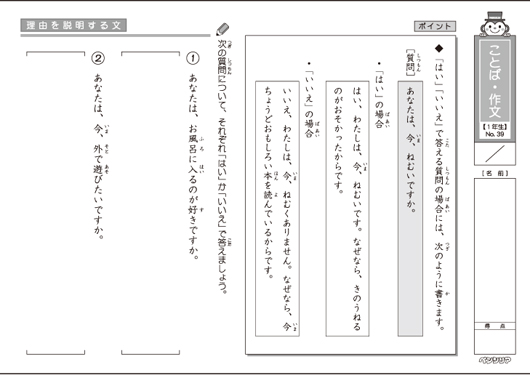 ことば・作文
【1年生】
No.39
【名前】
得点
ペンシリア
ポイント
◆「はい」「いいえ」で答える質問の場合には、次のように書きます。
［質問］
あなたは、今、ねむいですか。
・「はい」の場合
はい、わたしは、今、ねむいです。なぜなら、きのうねる
のがおそかったからです。
・「いいえ」の場合
いいえ、わたしは、今、ねむくありません。なぜなら、今
ちょうどおもしろい本を読んでいるからです。
理由を説明する文
次の質問について、それぞれ「はい」か「いいえ」で答えましょう。
① あなたは、お風呂に入るのが好きですか。
② あなたは、今、外で遊びたいですか。